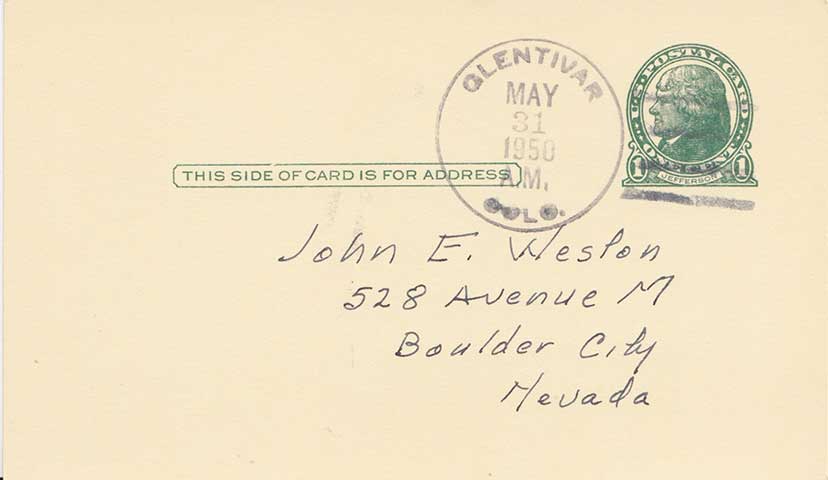 GLENTIVAR
MAY
31
1950
A.M.
COLO.
U.S. POSTAL CARD
1 1
JEFFERSON
THIS SIDE OF CARD IS FOR ADDRESS
John E. Weston
528 Avenue M
Boulder City
Nevada